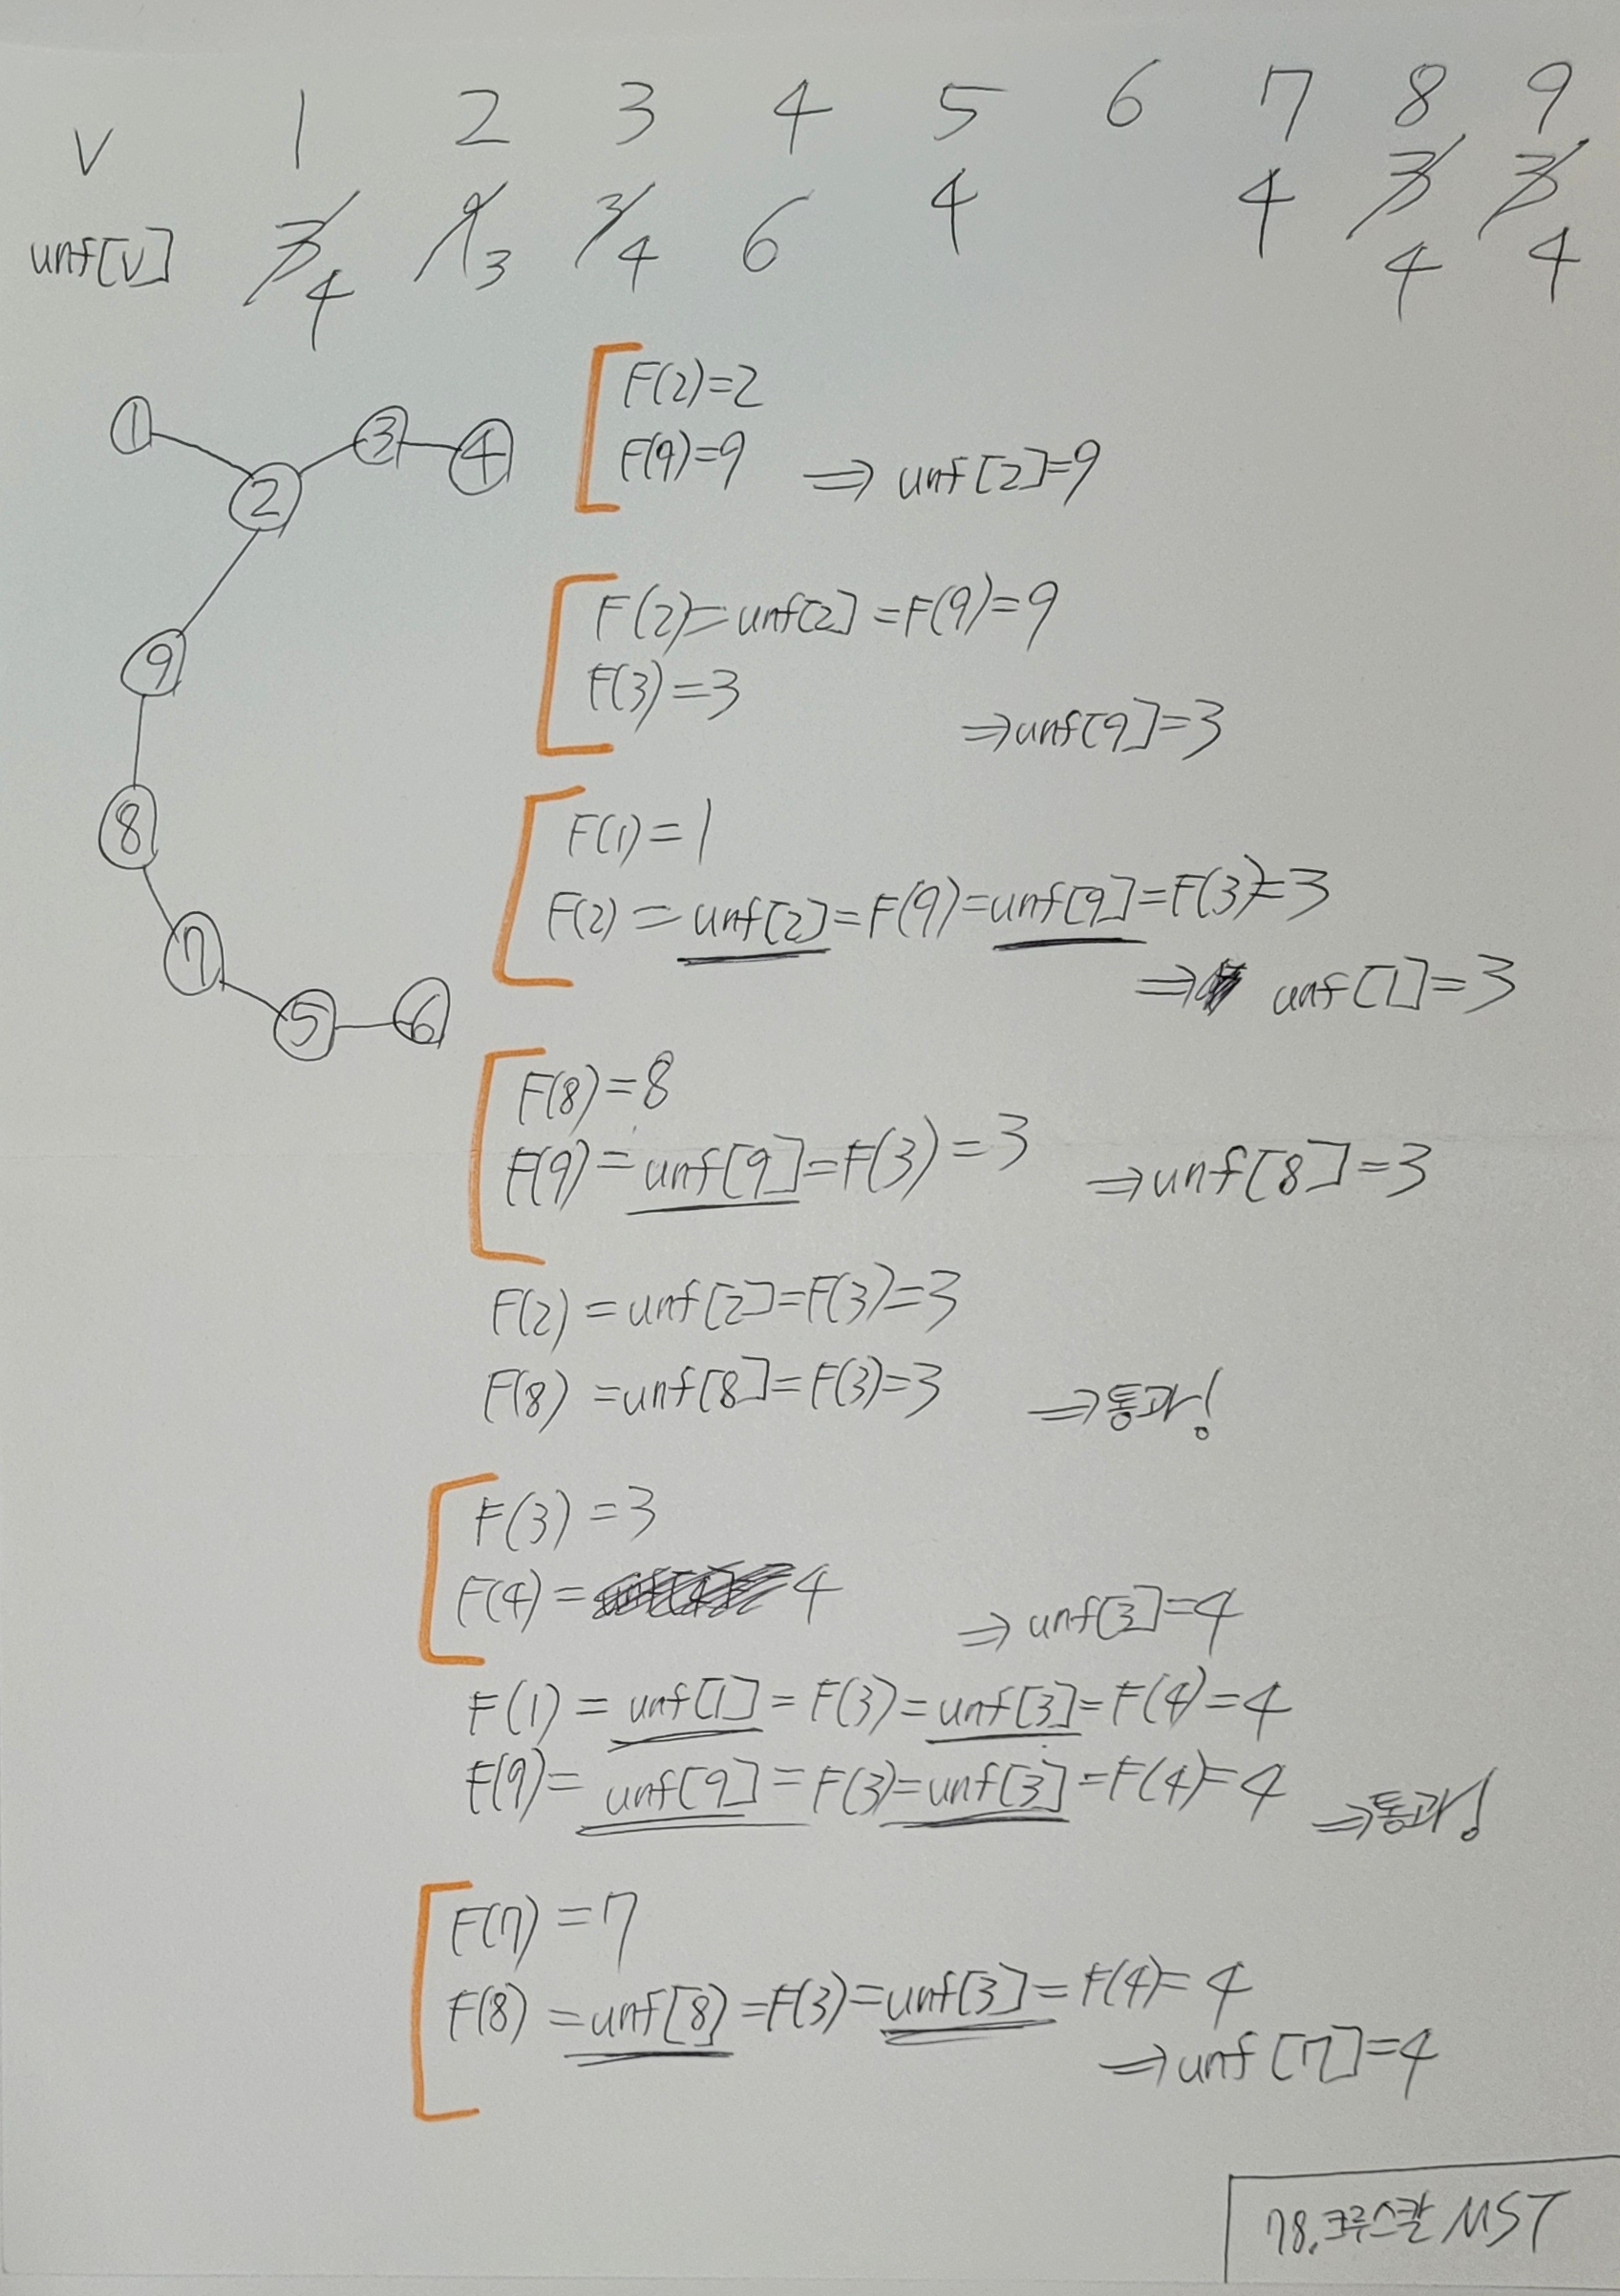 V 1 2 3 4 5 6 7 8 9
unf[v] 3 4 9 3 3 4 6 4 4 3 4 3 4
① ② ③ ④
⑨
⑧
⑦
⑤ ⑥
F(2)=2
F(9)=9 ⇒ unf[2]=9
F(2)=unf[2]=F(9)=9
F(3)=3
⇒unf[9]=3
F(1)=1
F(2)=unf[2]=F(9)=unf[9]=F(3)=3
⇒ unf[1]=3
F(8)=8
F(9)=unf[9]=F(3)=3 ⇒unf[8]=3
F(2)=unf[2]=F(3)=3
F(8)=unf[8]=F(3)=3 ⇒통과!
F(3)=3
F(4)=4 ⇒unf[3]=4
F(1)=unf[1]=F(3)=unf[3]=F(4)=4
F(9)=unf[9]=F(3)=unf[3]=F(4)=4 ⇒통과!
F(7)=7
F(8)=unf[8]=F(3)=unf[3]=F(4)=4
⇒unf[7]=4
78.크루스칼 MST